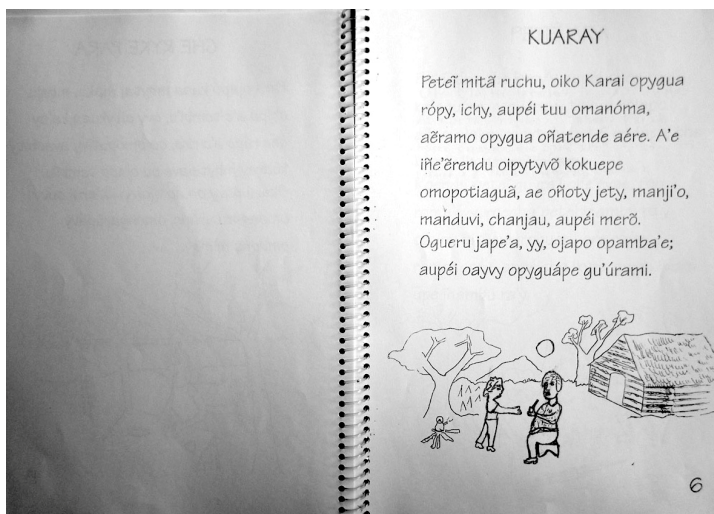 KUARAY
Peteĩ mitã ruchu, oiko Karai opygua
rópy, ichy, aupéi tuu omanóma,
aẽramo opygua oñatende aére. A'e
iñe'ẽrendu oipytyvõ kokuepe
omopotiaguã, ae oñoty jety, manji'o,
manduvi, chanjau, aupéi merõ.
Ogueru jape'a, yy, ojapo opamba'e;
aupéi oayvy opyguápe gu'úrami.
6